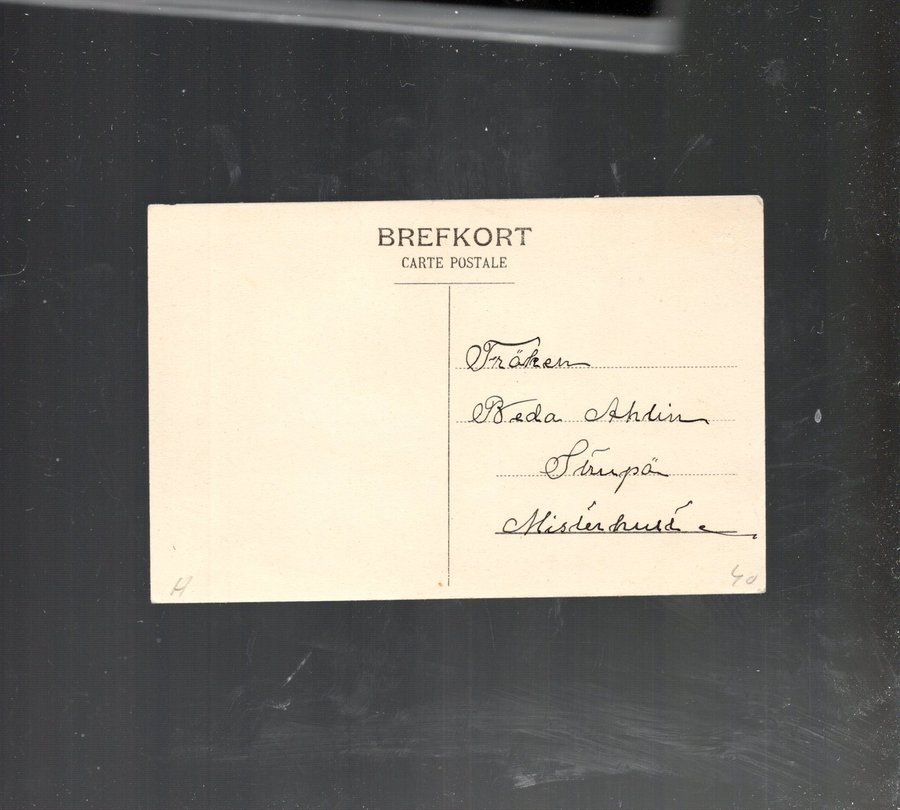 BREFKORT
CARTE POSTALE
Fröken
Beda Ahlin
Misterhult
H
40